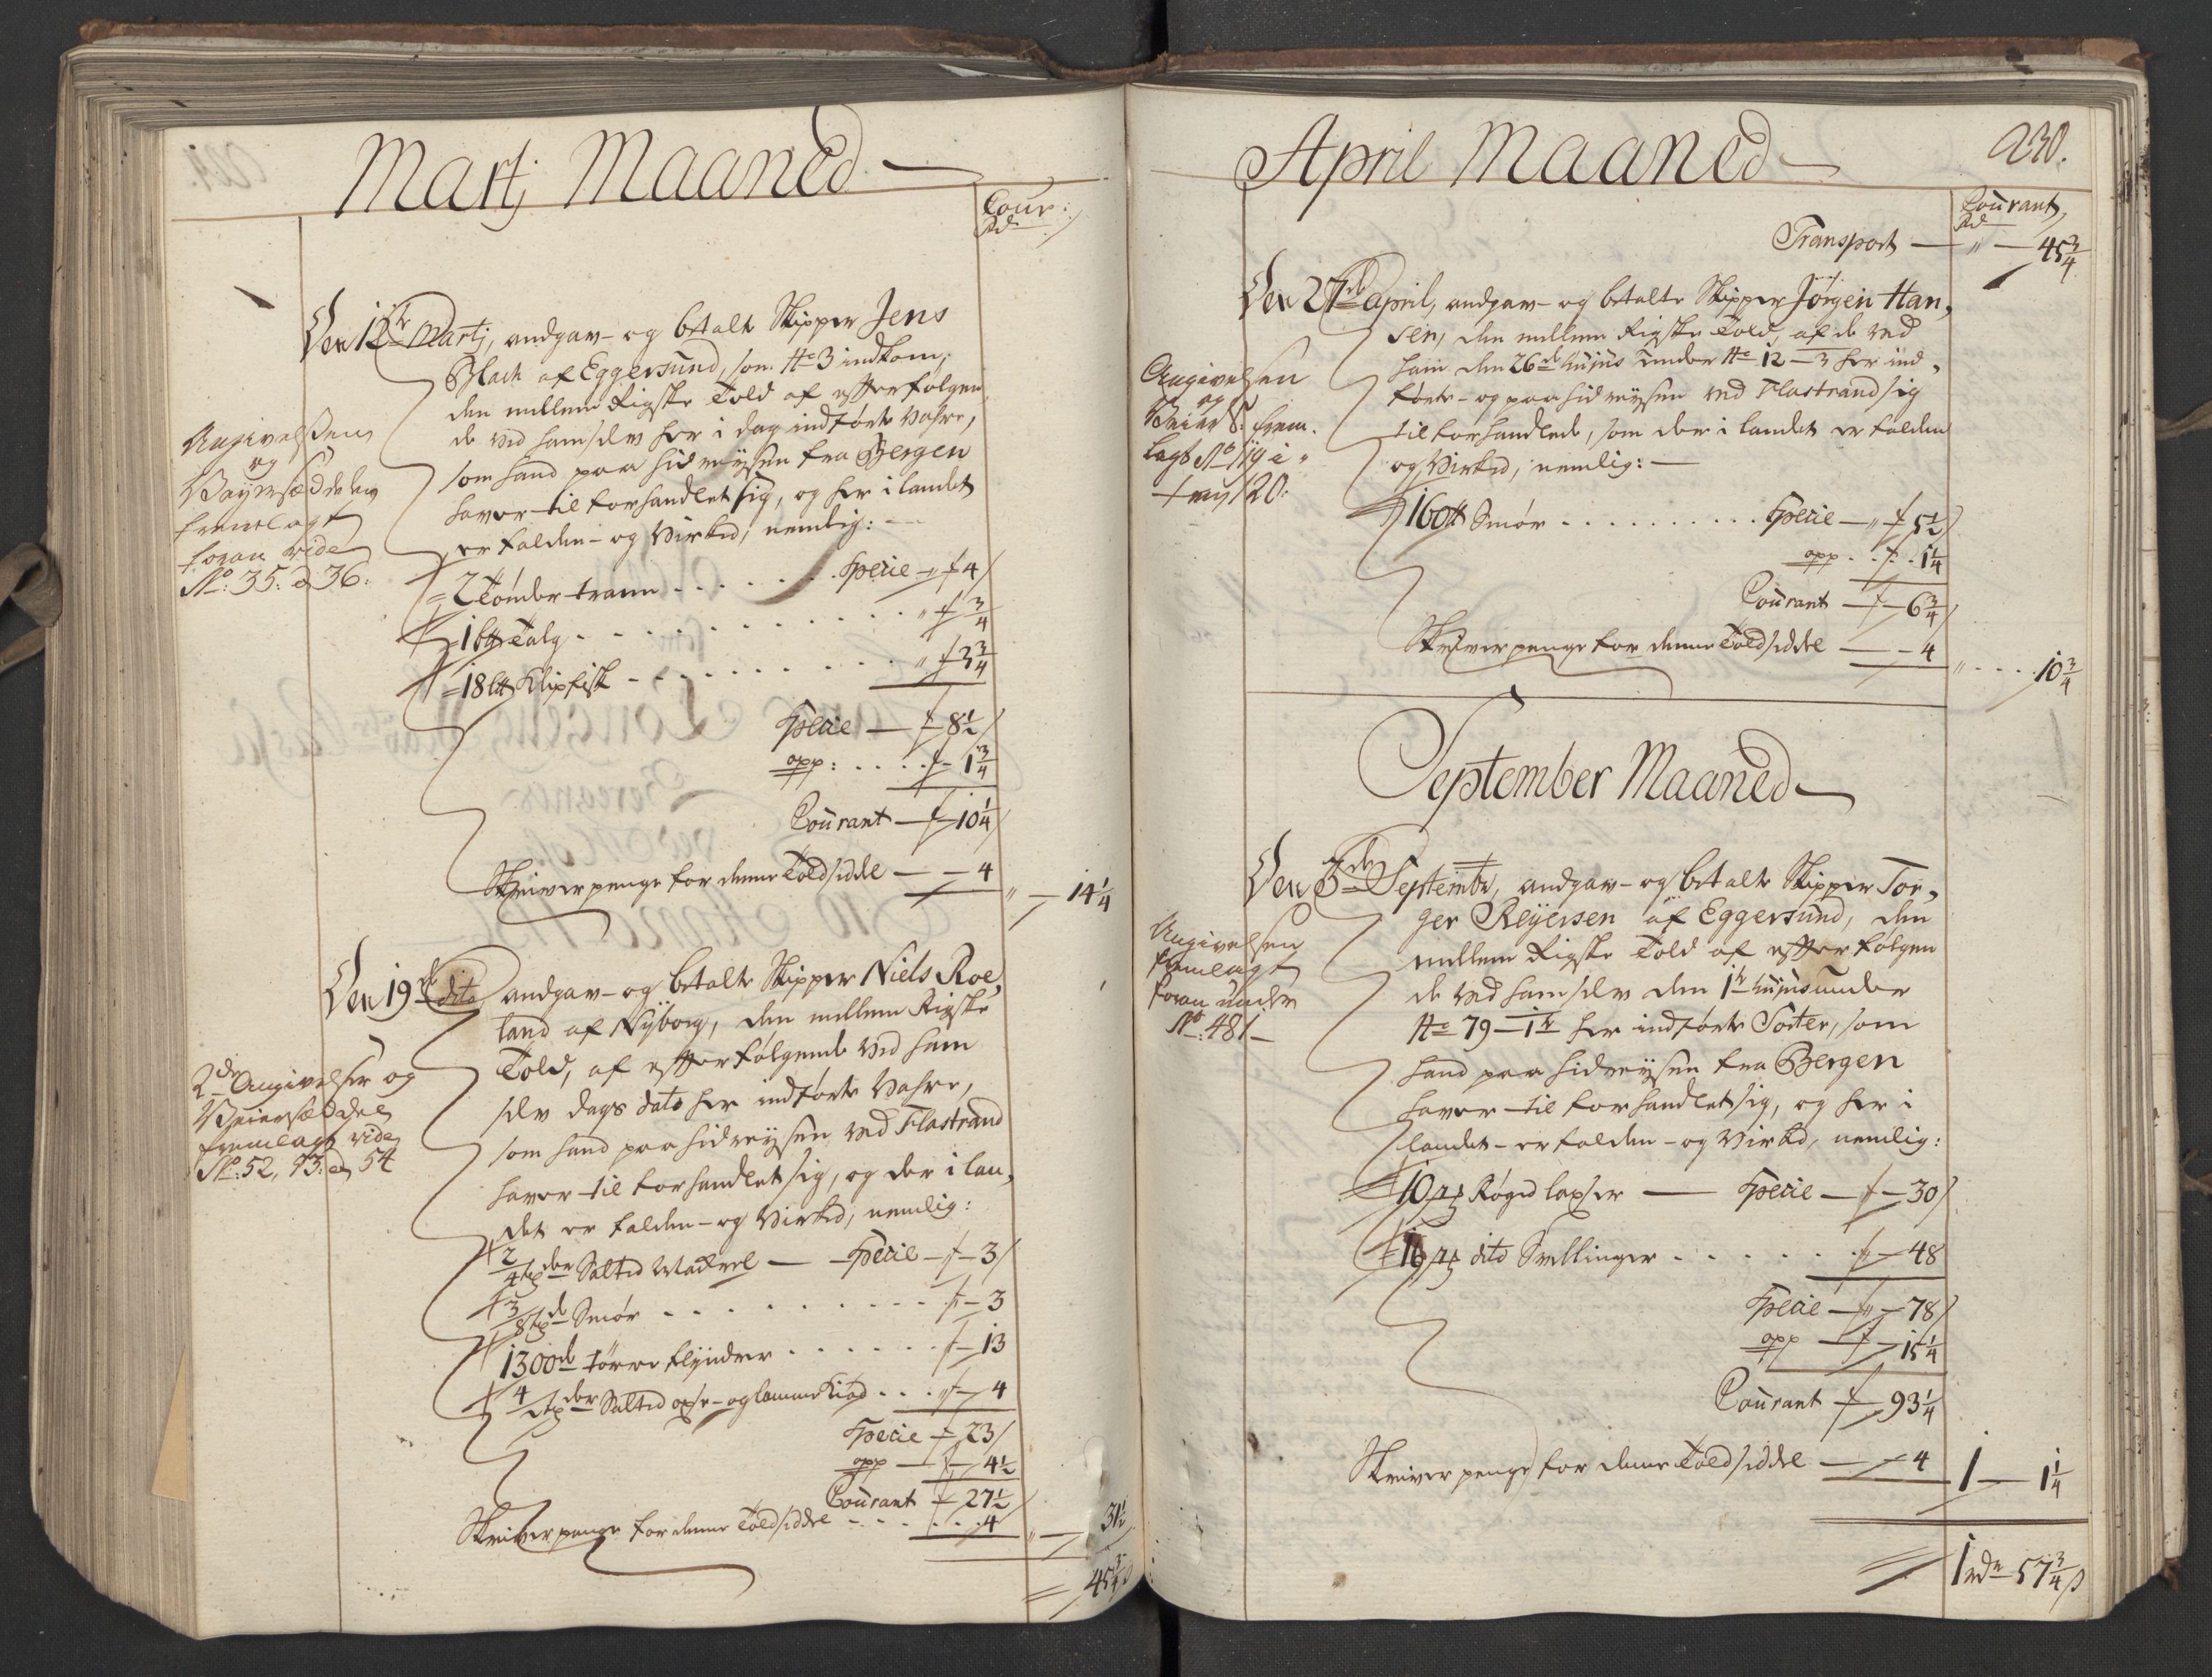 Martj Maaned
Cour:
Rd
Den 12te Martj, andgav- og betalte Skipper Jens
Black af Eggersund, som No 3 indkom,
den mellem Rigske Told af efterfølgen,
de ved ham selv her i dag indførte Vahre,
som hand paa hidreysen fra Bergen
haver til forhandlet sig, og her i landet
er falden- og Virked, nemlig:
Angivelsen
og
Vøyersæddelen
fremlagt
foran vide
No: 35: & 36:
2 Tønder trann . . . . . . Specie — " 4
1 btt Talg - - - - - " 3/4
18 btt Klipfisk - - - - - " 3 3/4
Specie — 8 1/2
opp: . . . . 1 3/4
Courant — 10 1/4
Skriverpenge for denne Toldsiddel — — 4
" — 14 1/4
Den 19de dito andgav- og betalte Skipper Niels Roe,
land af Nyborg, den mellem Rigske
Told, af efterfølgende ved ham
selv dags dato her indførte Vahre,
som hand paa hidreysen ved Flastrand
haver til forhandlet sig, og der i lan,
det er falden- og Virked, nemlig:
2de Angivelser og
Veiersæddel
fremlagt vide
No: 52, 53: & 54
2/4 tr Salted Mackrel — Specie — 3
3/8 td Smør - - - - - 3
1300de tørre flyndrer . . . . . . 13
4/ Salted oxe- og lamme Kiød . . . " 4
Specie — 23
opp — 4 1/2
Courant — 27 1/2
Skriverpenge for denne Toldsiddel - - - . . . 4
" — 31 1/2
45 3/4 ß
April Maaned
230.
Courant
Rd
Transport — " — 45 3/4
Den 27de April, andgav- og betalte Skipper Jørgen Han,
sen, den mellem Rigske Told, af de ved
ham den 26de hujus under No 12 — 3 her ind,
førte- og paa hidreysen ved Flastrand sig
til forhandlede, som der i landet er falden
og Virked, nemlig: —
Angivelsen
og
Veier S: frem,
lagt No 119 i
120:
160 tt Smør . . . . . . . . . . Specie — " 5 1/2
opp . . . 1 1/4
Courant — 6 3/4
Skriverpenge for denne Toldsiddel — — 4
" . . . . 10 3/4
September Maaned
Den 3de Septembr, andgav- og betalte Skipper Tor,
ger Reyersen af Eggersund, den
mellem Rigske Told af efterfølgen
de ved ham selv den 1te hujus under
No 79 — 1te her indførte Sorter, som
hand paa hidreysen fra Bergen
haver til forhandlet sig, og her i
landet- er falden- og Virked, nemlig:
Angivelsen
fremlagt
foran under
No: 481 —
10 Røged laxser — Specie — 30
16 dito Svellinger . . . . . . . 48
Specie — " 78
opp — 15 1/4
Courant — 93 1/4
Skriver penge for denne Toldsiddel — — 4
1 — 1 1/4
1 rdr 57 3/4 ß